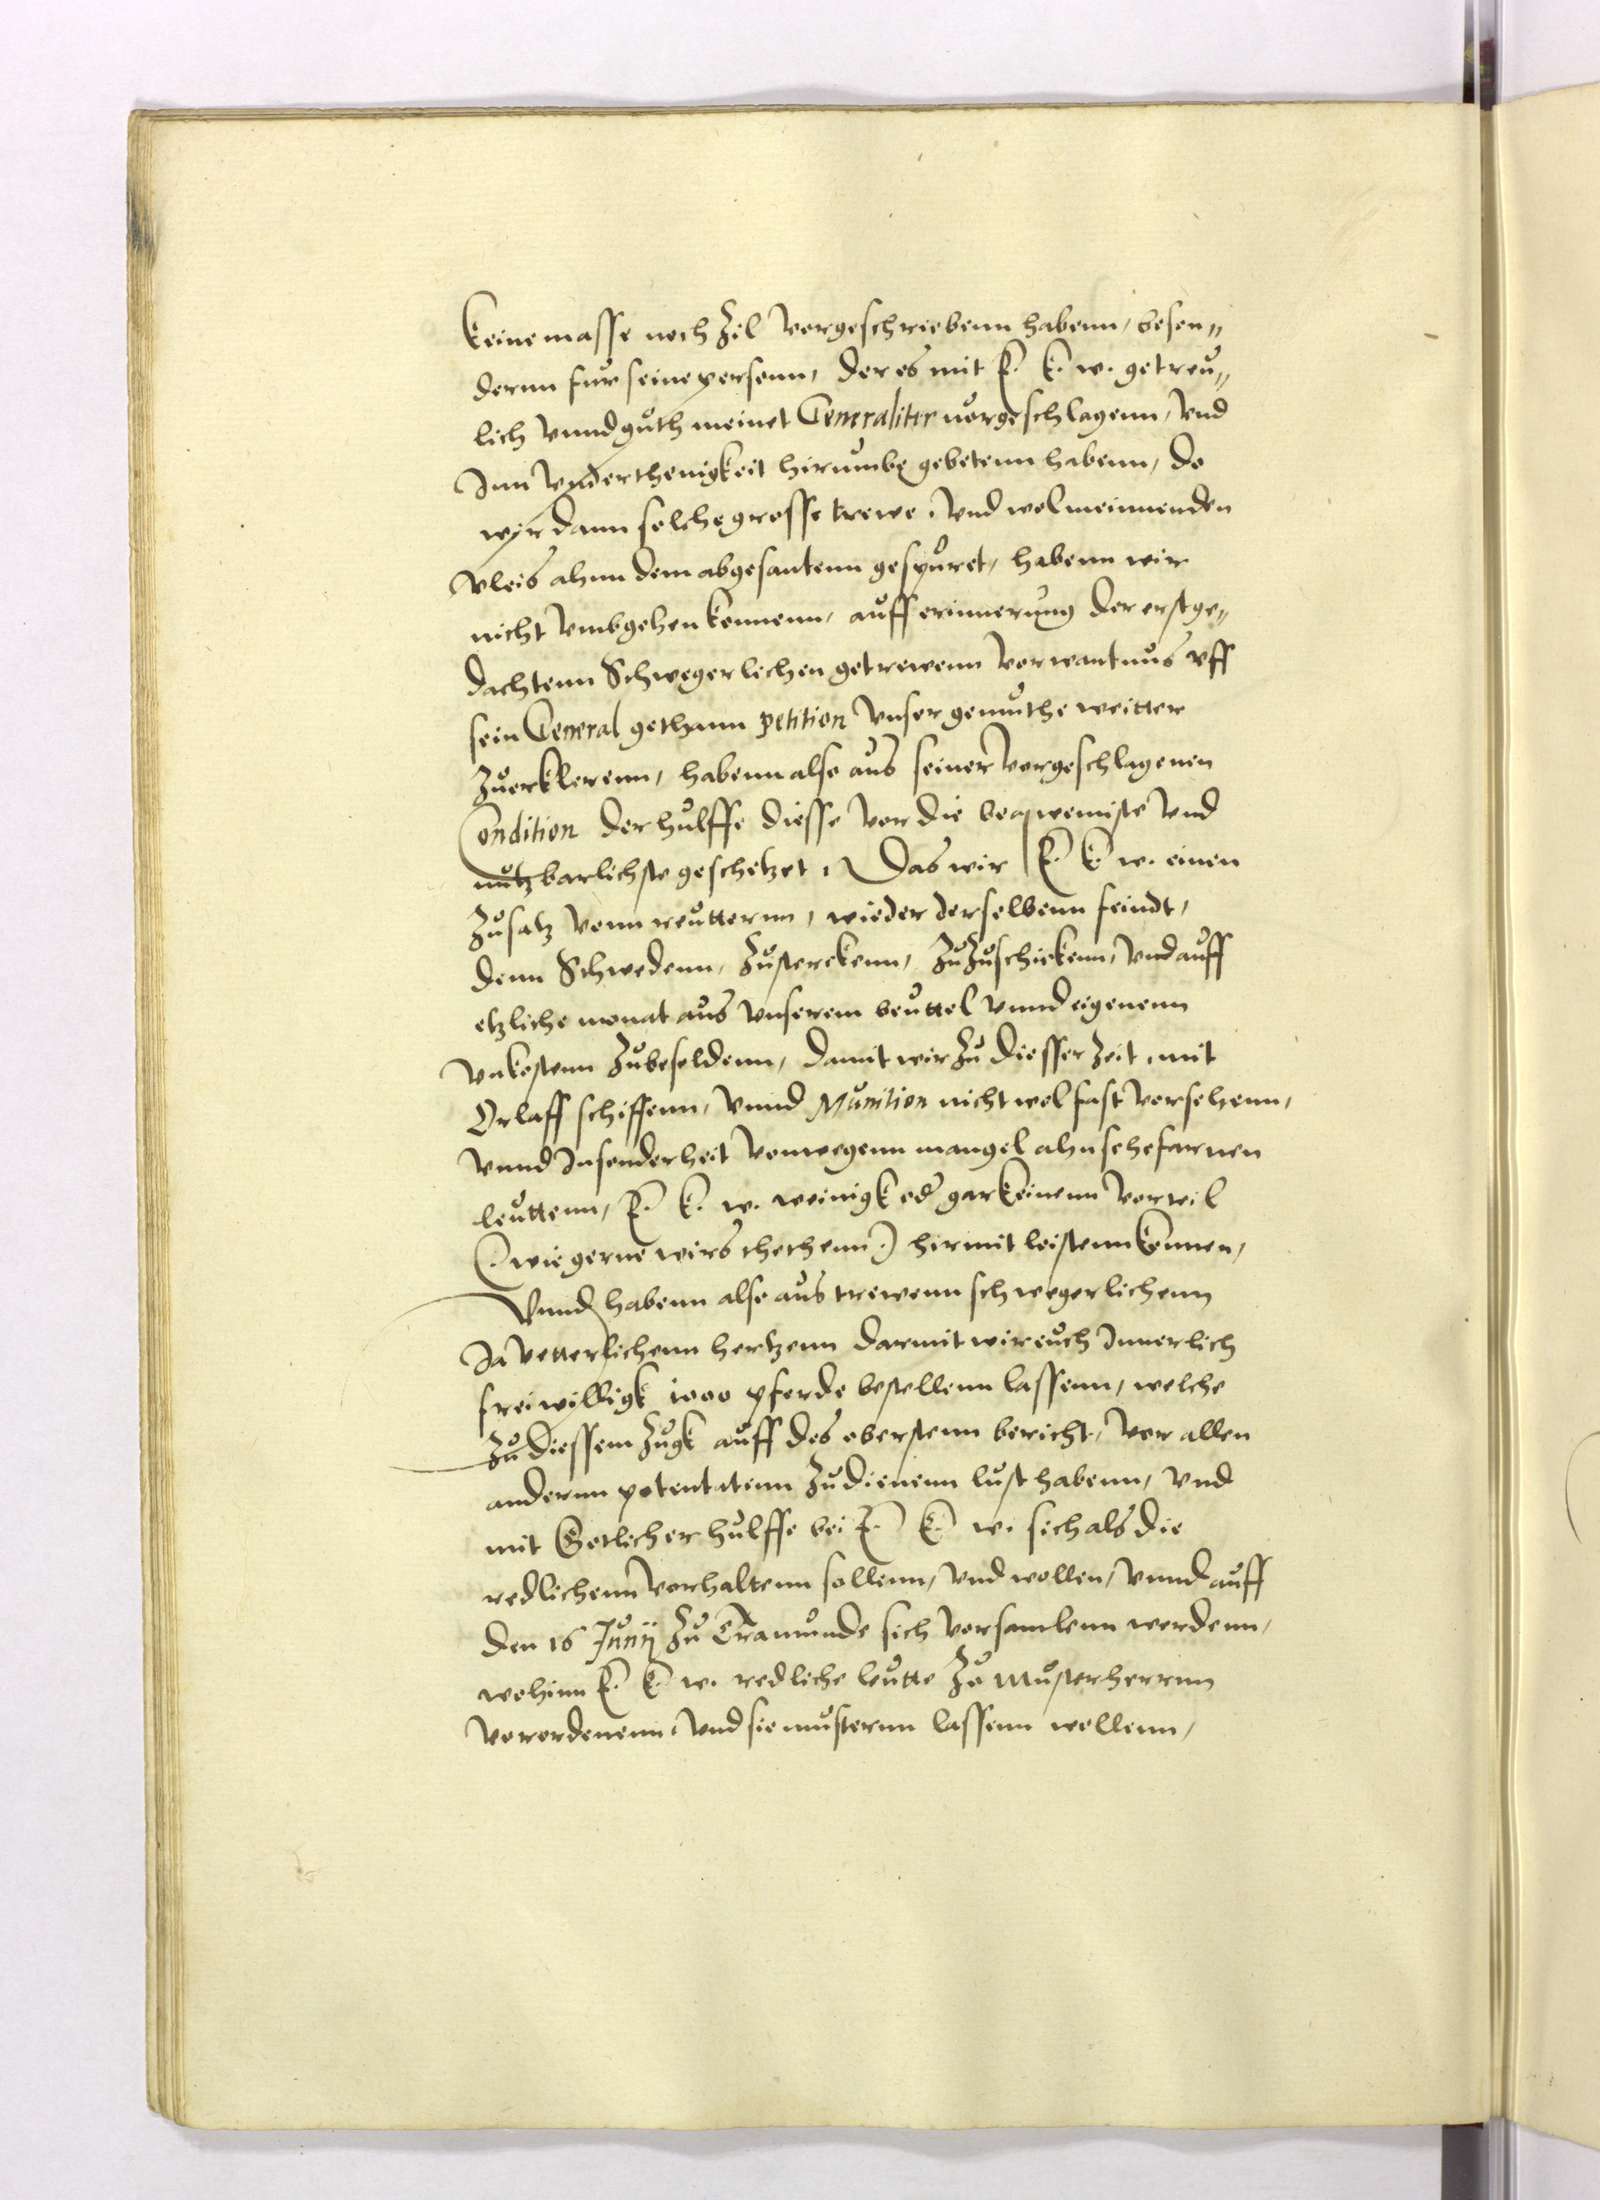 keine masse noch Zil vorgeschriebenn habenn, beson„
dernn fur seine personn, der es mit E. K. w. getreu„
lich vnnd guth meinet Generaliter vorgeschlagenn, vnd
Inn vnderthenigkeit hirumbe gebetenn habenn, do
wyr dann solche grosse trewe, vnd wolmeinnenden
vleis ahnn dem abgesantenn gespuret, habenn wir
nicht vmbgehen konnenn, auff erinnerung der erstge„
dachtenn Schwegerlichen getrewenn vorwantnus vff
sein General gethann petition vnser gemuthe weitter
Zuerklerenn, habenn also aus seiner vorgeschlagenen
Condition der hulffe diesse vor die beqwemiste vnd
nutzbarlichste geschetzet, Das wir E. K. w. einen
Zusatz vonn reutternn, wieder derselbenn feindt,
denn Schwedenn, Zusterckenn, Zuzuschickenn, vnd auff
etzliche monat aus vnserem beuttel vnnd eigenenn
vnkostenn Zubesoldenn, damit wir Zu diesser Zeit, mit
Orlaff schiffenn, vnnd Munition nicht wol fast versehenn,
vnnd Insonderheit vonwegenn mangel ahn sehefarnen
leuttenn, E. K. w. weinigk od gar keinenn vorteil
(: wie gerne wirs thethenn :) hirmit leistenn konnen,
Vnnd habenn also aus trewenn schwegerlichenn
Ja vetterlichenn hertzenn darmit wir euch Innerlich
freiwilligk 1000 pferde bestellenn lassenn, welche
Zu diessem Zugk auff des oberstenn bericht, vor allen
andernn potentatenn Zudienenn lust habenn, vnd
mit Gotlicher hulffe bei E. K. w. sich als die
redlichenn vorhaltenn sollenn, vnd wollen, vnnd auff
den 16 Junij Zu Tramunde sich vorsamlenn werdenn,
wohinn E. K. w. redliche leutte Zu Musterherrnn
vorordenenn, vnd sie musternn lassenn wollenn,